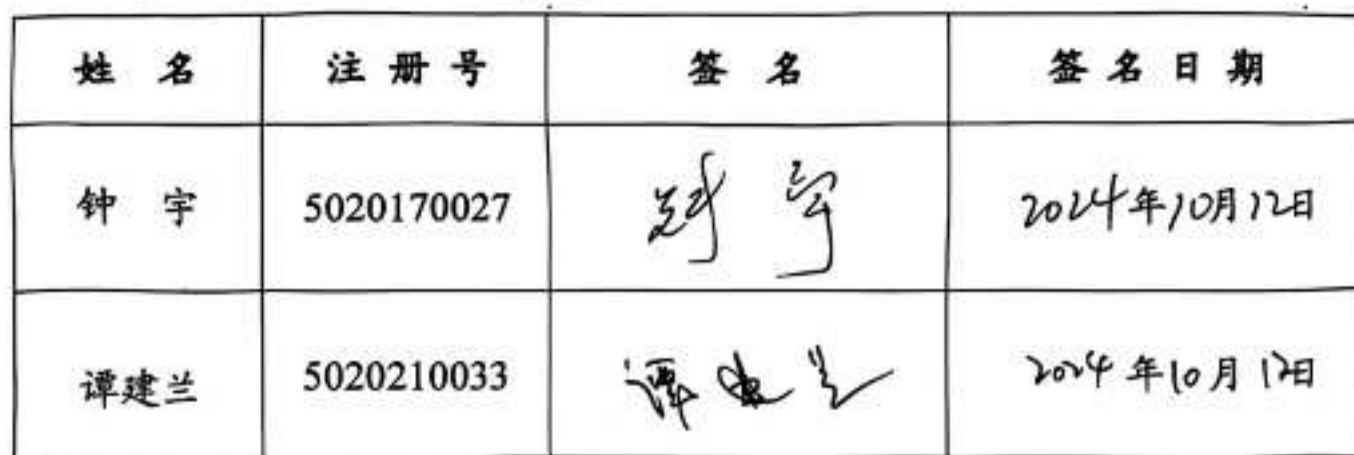 姓 名 注 册 号 签 名 签 名 日 期
钟 宇 5020170027 钟 宇 2024年10月12日
谭建兰 5020210033 谭建兰 2024年10月12日